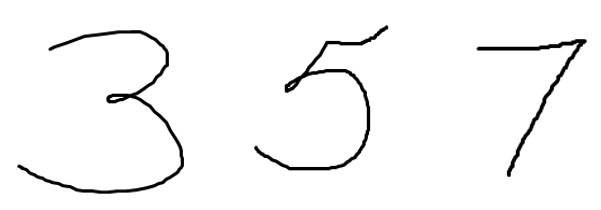 3 5 7